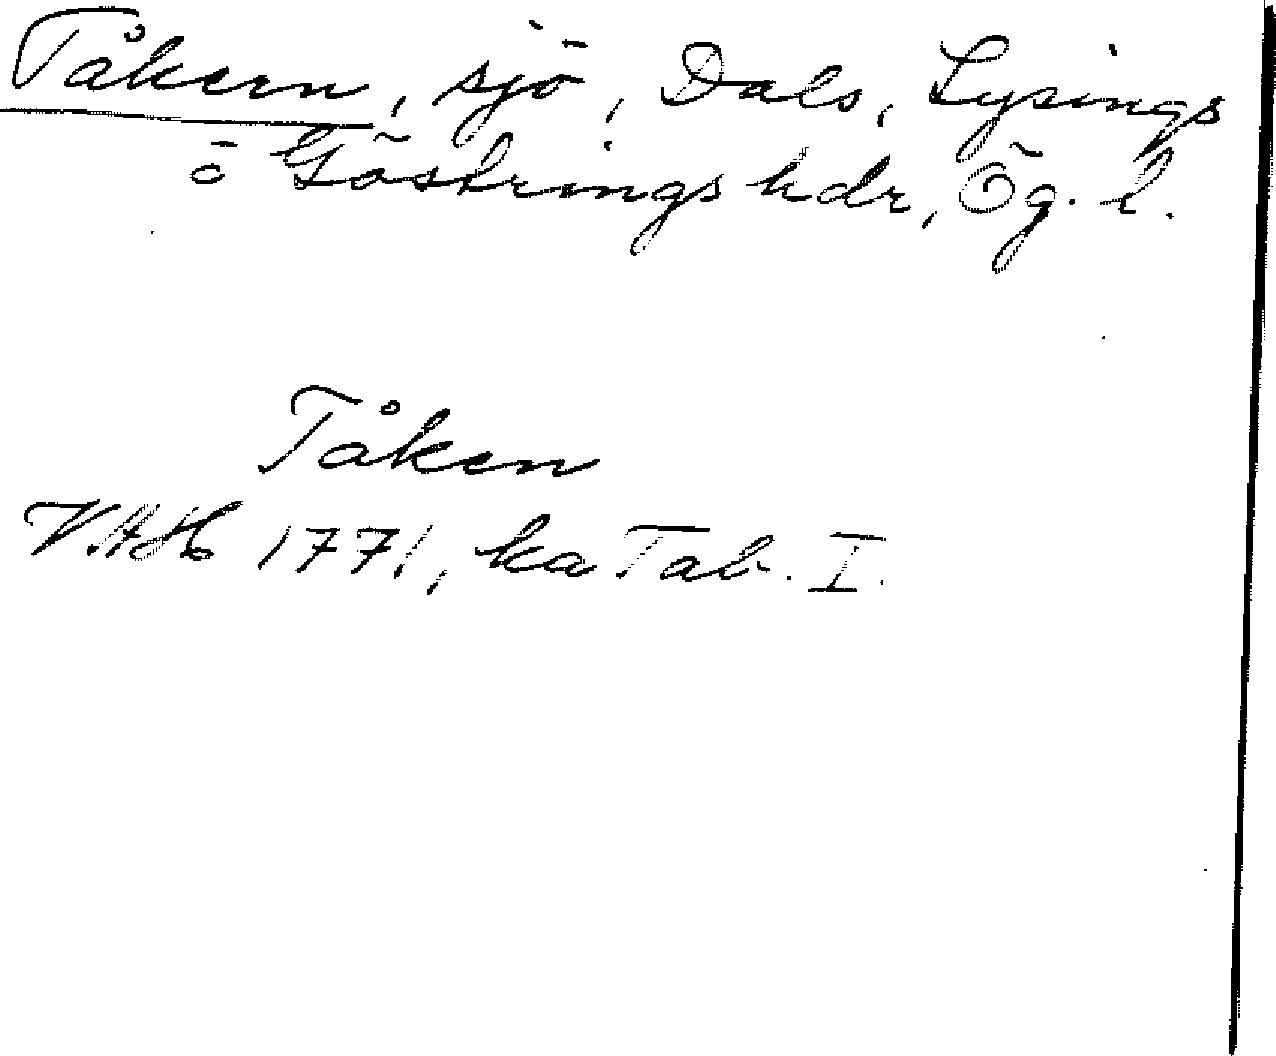 Tåkern, sjö, Dals, Lysings
o Göstrings hdr, Ög. l.
Tåken
VAH 1771, ka Tab. I.